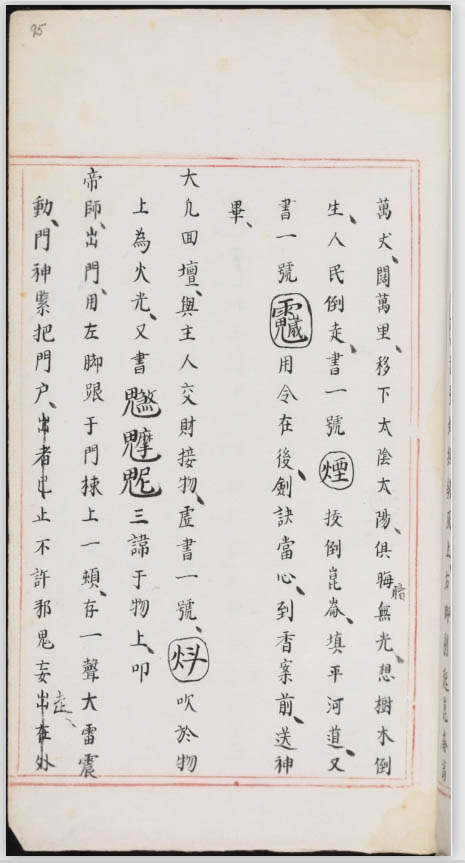 95
萬丈、闊萬里、移下太陰太陽、俱晦暗無光、想樹木倒
生、人民倒走、書一號煙挍倒崑崙、填平河道、又
書一號用令在後、劍訣當心、到香案前、送神
畢、
大凢回壇、與主人交財接物、虛書一號、炓吹於物
上為火光、又書三諱于物上、叩
帝師、出門、用左脚跟于門拺上一頓、存一聲大雷震
動、門神緊把門户、出者出止不許邪鬼妄出在外走、